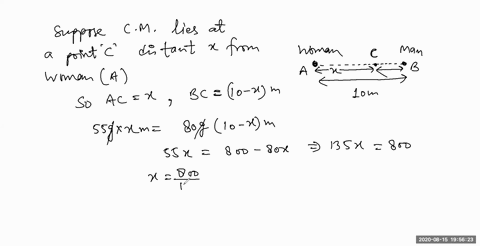 Suppose C.M. lies at
a point 'C' distant x from
Woman (A)
So AC = x , BC = (10-x) m
55g × x m = 80g (10-x) m
55x = 800 - 80x ⇒ 135x = 800
x = 800/1
Woman C Man
A x B
10m
2020-08-15 19:56:23